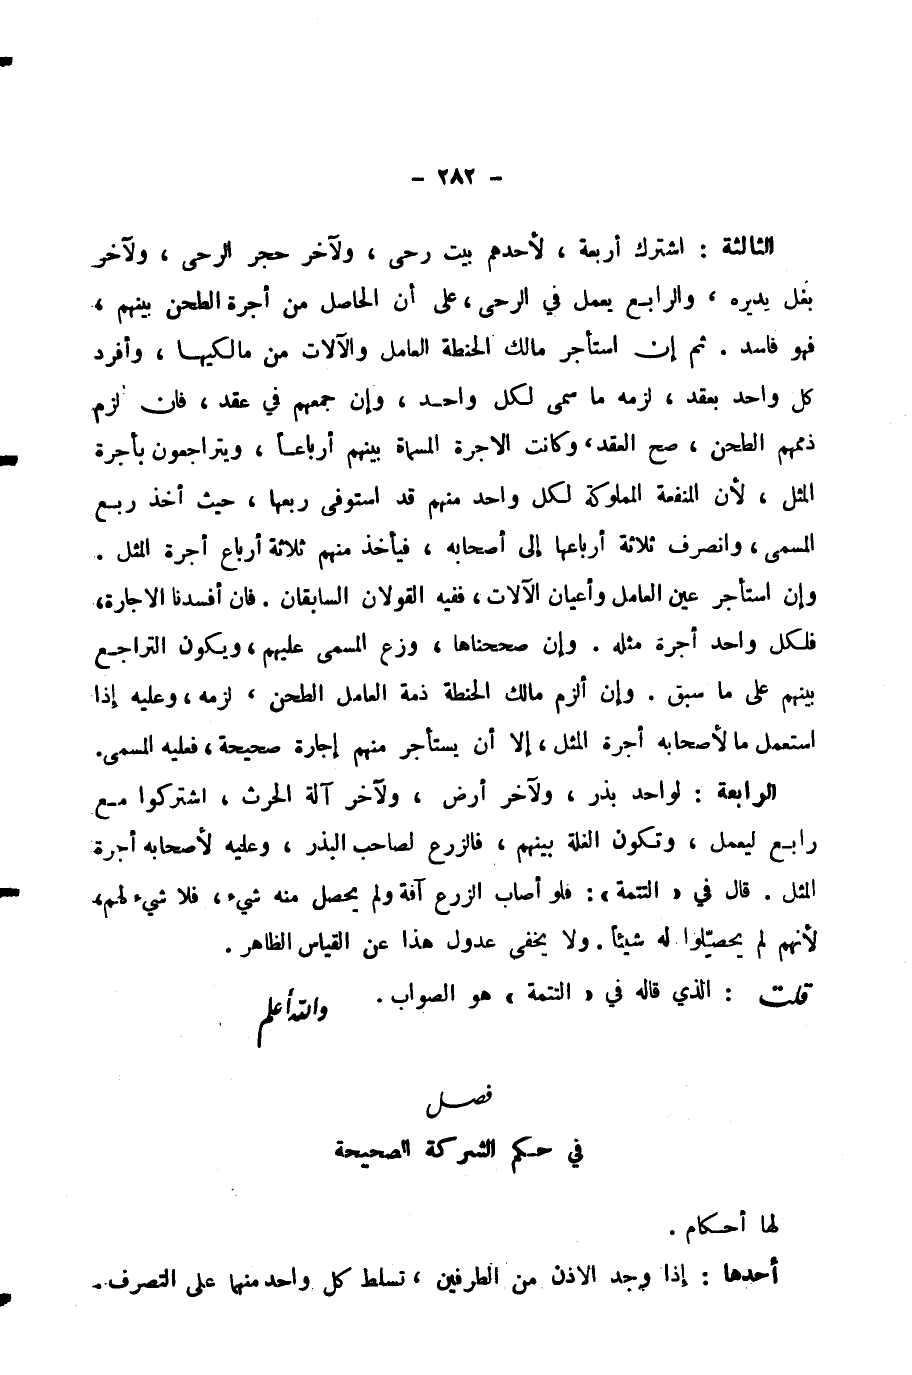 - ٢٨٢ -
الثالثة : اشترك أربعة ، لأحدهم بيت رحى ، ولآخر حجر الرحى ، ولآخر
بغل يديره ، والرابع يعمل في الرحى ، على أن الحاصل من أجرة الطحن بينهم ،
فهو فاسد . ثم إن استأجر مالك الحنطة العامل والآلات من مالكيها ، وأفرد
كل واحد بعقد ، لزمه ما سمى لكل واحد ، وإن جمعهم في عقد ، فان لزم
ذممهم الطحن ، صح العقد ، وكانت الاجرة المسماة بينهم أرباعاً ، ويتراجعون بأجرة
المثل ، لأن المنفعة المملوكة لكل واحد منهم قد استوفى ربعها ، حيث أخذ ربع
المسمى ، وانصرف ثلاثة أرباعها إلى أصحابه ، فيأخذ منهم ثلاثة أرباع أجرة المثل .
وإن استأجر عين العامل وأعيان الآلات ، ففيه القولان السابقان . فان أفسدنا الاجارة ،
فلكل واحد أجرة مثله . وإن صححناها ، وزع المسمى عليهم ، ويكون التراجع
بينهم على ما سبق . وإن ألزم مالك الحنطة ذمة العامل الطحن ، لزمه ، وعليه إذا
استعمل ما لأصحابه أجرة المثل ، إلا أن يستأجر منهم إجارة صحيحة ، فعليه المسمى.
الرابعة : لواحد بذر ، ولآخر أرض ، ولآخر آلة الحرث ، اشتركوا مع
رابع ليعمل ، وتكون الغلة بينهم ، فالزرع لصاحب البذر ، وعليه لأصحابه أجرة
المثل . قال في « التتمة » : فلو أصاب الزرع آفة ولم يحصل منه شيء ، فلا شيء لهم ،
لأنهم لم يحصّلوا له شيئاً . ولا يخفى عدول هذا عن القياس الظاهر .
قلت : الذي قاله في « التتمة » هو الصواب . والله أعلم
فصل
في حكم الشركة الصحيحة
لها أحكام .
أحدها : إذا وجد الاذن من الطرفين ، تسلط كل واحد منهما على التصرف .